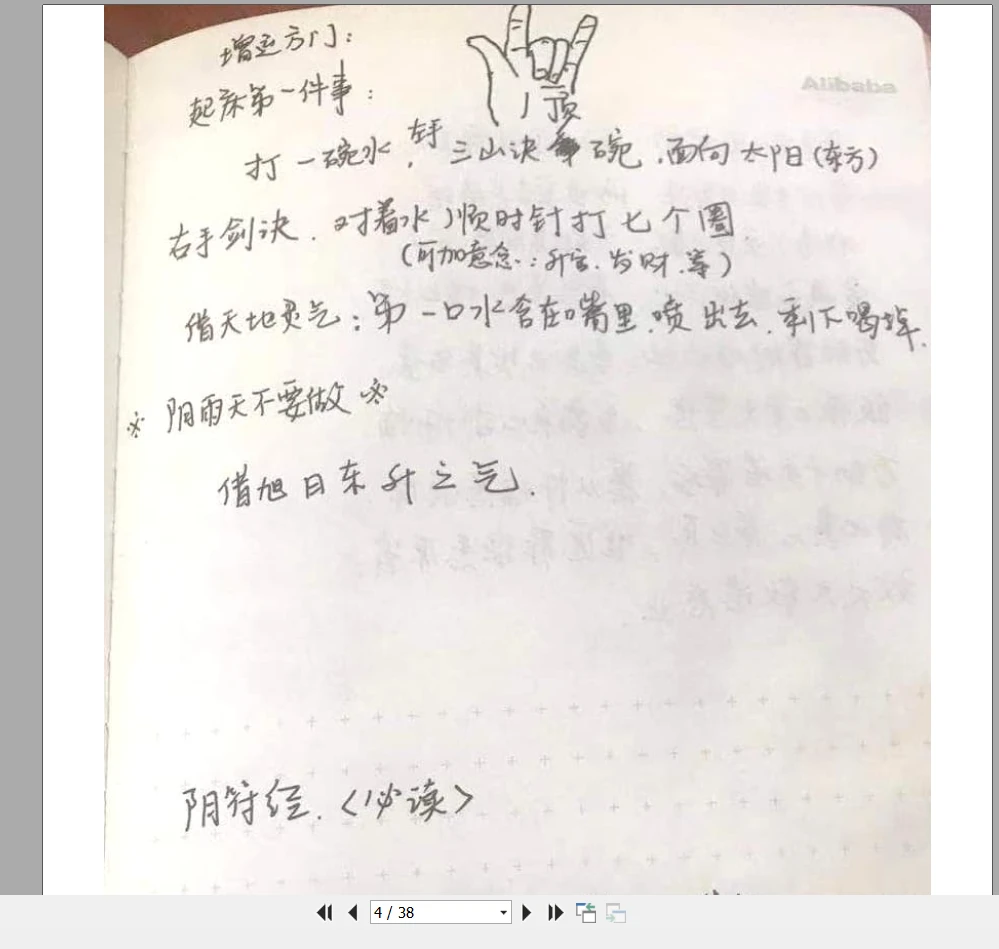 增运方门：
Alibaba
起床第一件事：
顶
左手
打一碗水，三山诀 碗，面向太阳(东方)
右手剑诀．对着水顺时针打七个圈．
(可加意念：升官．发财．等)
借天地灵气：第一口水含在嘴里．喷出去．剩下喝掉．
※ 阴雨天不要做 ※
借旭日东升之气．
阴符经．<必读>
4 / 38